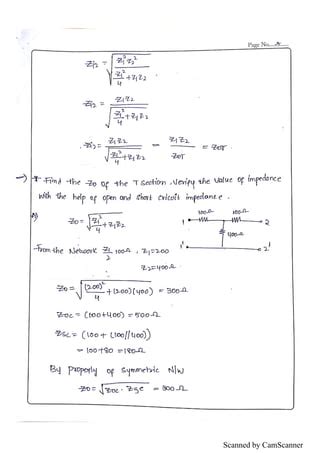 Page No.
Zi2 = √(Z1² Z2² / (Z1²/4 + Z1Z2))
Zi2 = Z1Z2 / √(Z1²/4 + Z1Z2)
∴ Zi2 = Z1Z2 / √(Z1²/4 + Z1Z2) = Z1Z2 / ZoT = Zoπ
Find the Zo of the T section, Verify the value of impedance
with the help of open and short cricuit impedance.
Zo = √(Z1²/4 + Z1Z2)
100Ω 100Ω
1 2
400Ω
1' 2'
From the Network Z1/2 100Ω, Z1=200
Z2=400Ω
Zo = √((200)²/4 + (200)(400)) = 300Ω
Zoc = (100+400) = 500Ω
Zsc = (100 + (100//400))
= 100+80 = 180Ω
By properly of symmetric N/W
Zo = √(Zoc · Zsc) = 300Ω
Scanned by CamScanner